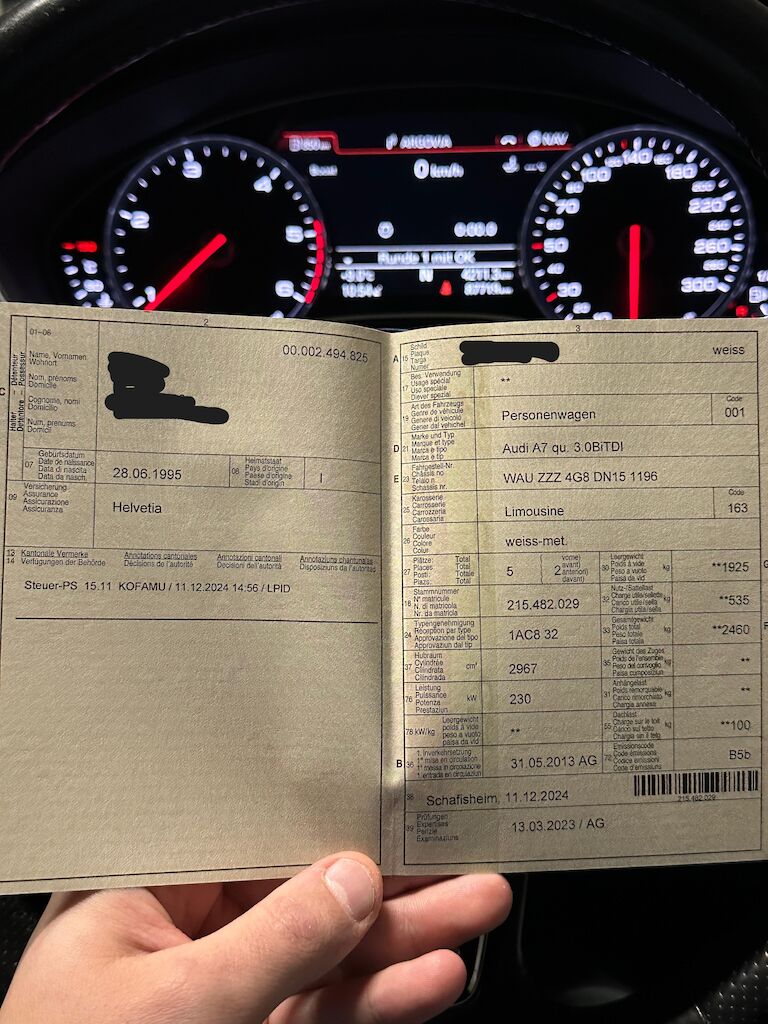 2
3
4
5
6
0 km/h
NAV
Runde 1 mit OK
N
30
50
70
100
140
180
220
260
300
2
01-06
00.002.494.825
C
Halter – Détenteur
Detentore – Possessur
Name, Vornamen
Wohnort
Nom, prénoms
Domicile
Cognome, nomi
Domicilio
Num, prenums
Domicil
07
Geburtsdatum
Date de naissance
Data di nascita
Data da nasch.
28.06.1995
08
Heimatstaat
Pays d'origine
Paese d'origine
Stadi d'origin
I
09
Versicherung
Assurance
Assicurazione
Assicuranza
Helvetia
13
14
Kantonale Vermerke
Verfügungen der Behörde
Annotations cantonales
Décisions de l'autorité
Annotazioni cantonali
Decisioni dell'autorità
Annotaziuns chantunalas
Disposiziuns da l'autoritad
Steuer-PS 15.11 KOFAMU / 11.12.2024 14:56 / LPID
3
A
15
Schild
Plaque
Targa
Numer
weiss
17
Bes. Verwendung
Usage spécial
Uso speciale
Diever spezial
**
19
Art des Fahrzeugs
Genre de véhicule
Genere di veicolo
Gener dal vehichel
Personenwagen
Code
001
D
21
Marke und Typ
Marque et type
Marca e tipo
Marca e tip
Audi A7 qu. 3.0BiTDI
E
23
Fahrgestell-Nr.
Châssis no
Telaio n.
Schassis nr.
WAU ZZZ 4G8 DN15 1196
25
Karosserie
Carrosserie
Carrozzeria
Carossaria
Limousine
Code
163
26
Farbe
Couleur
Colore
Colur
weiss-met.
27
Plätze: Total
Places Total
Posti: Totale
Plazs: Total
5
2
vorne)
avant)
anteriori)
davant)
30
Leergewicht
Poids à vide
Peso a vuoto
Paisa da vid
kg
**1925
G
18
Stammnummer
N° matricule
N. di matricola
Nr. da matricla
215.482.029
32
Nutz-/Sattellast
Charge utile/sellette
Carico utile/sella
Chargia utila/sella
kg
**535
24
Typengenehmigung
Réception par type
Approvazione del tipo
Approvaziun dal tip
1AC8 32
33
Gesamtgewicht
Poids total
Peso totale
Paisa totala
kg
**2460
F
37
Hubraum
Cylindrée
Cilindrata
Cilindrada
cm³
2967
35
Gewicht des Zuges
Poids de l'ensemble
Peso del convoglio
Paisa cumposiziun
kg
**
76
Leistung
Puissance
Potenza
Prestaziun
kW
230
31
Anhängelast
Poids remorquable
Carico rimorchiato
Chargia annexa
kg
**
78 kW/kg
Leergewicht
poids à vide
peso a vuoto
paisa da vid
**
55
Dachlast
Charge sur le toit
Carico sul tetto
Chargia sin il tetg
kg
**100
B
36
1. Inverkehrsetzung
1re mise en circulation
1a messa in circolazione
1 entrada en circulaziun
31.05.2013 AG
72
Emissionscode
Code émissions
Codice emissioni
Code d'emissiuns
B5b
38
Schafisheim, 11.12.2024
215.482.029
39
Prüfungen
Expertises
Perizie
Examinaziuns
13.03.2023 / AG